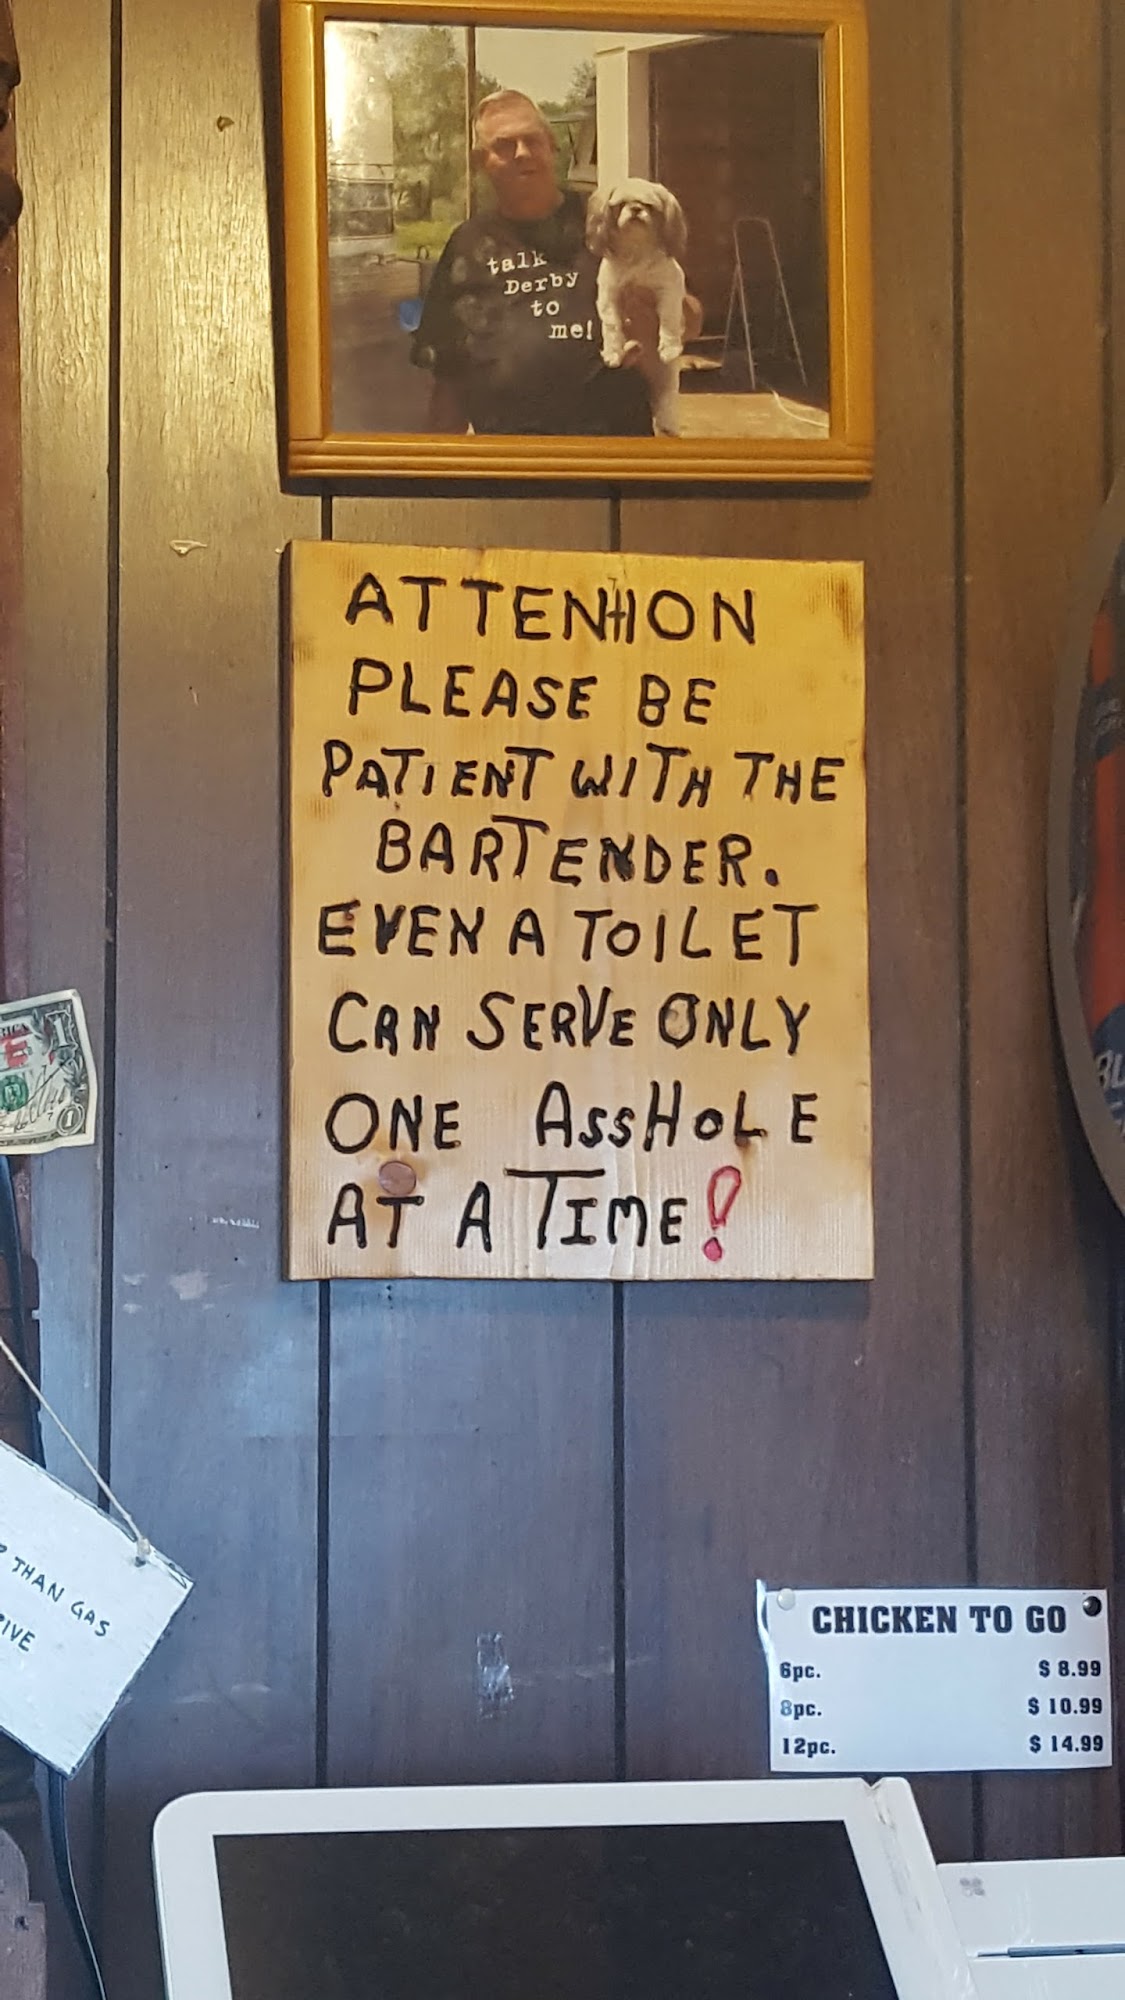 talk
Derby
to
me!
ATTENTION
PLEASE BE
PATIENT WITH THE
BARTENDER.
EVEN A TOILET
CAN SERVE ONLY
ONE ASSHOLE
AT A TIME!
1
1
THAN GAS
CHICKEN TO GO
6pc. $ 8.99
8pc. $ 10.99
12pc. $ 14.99